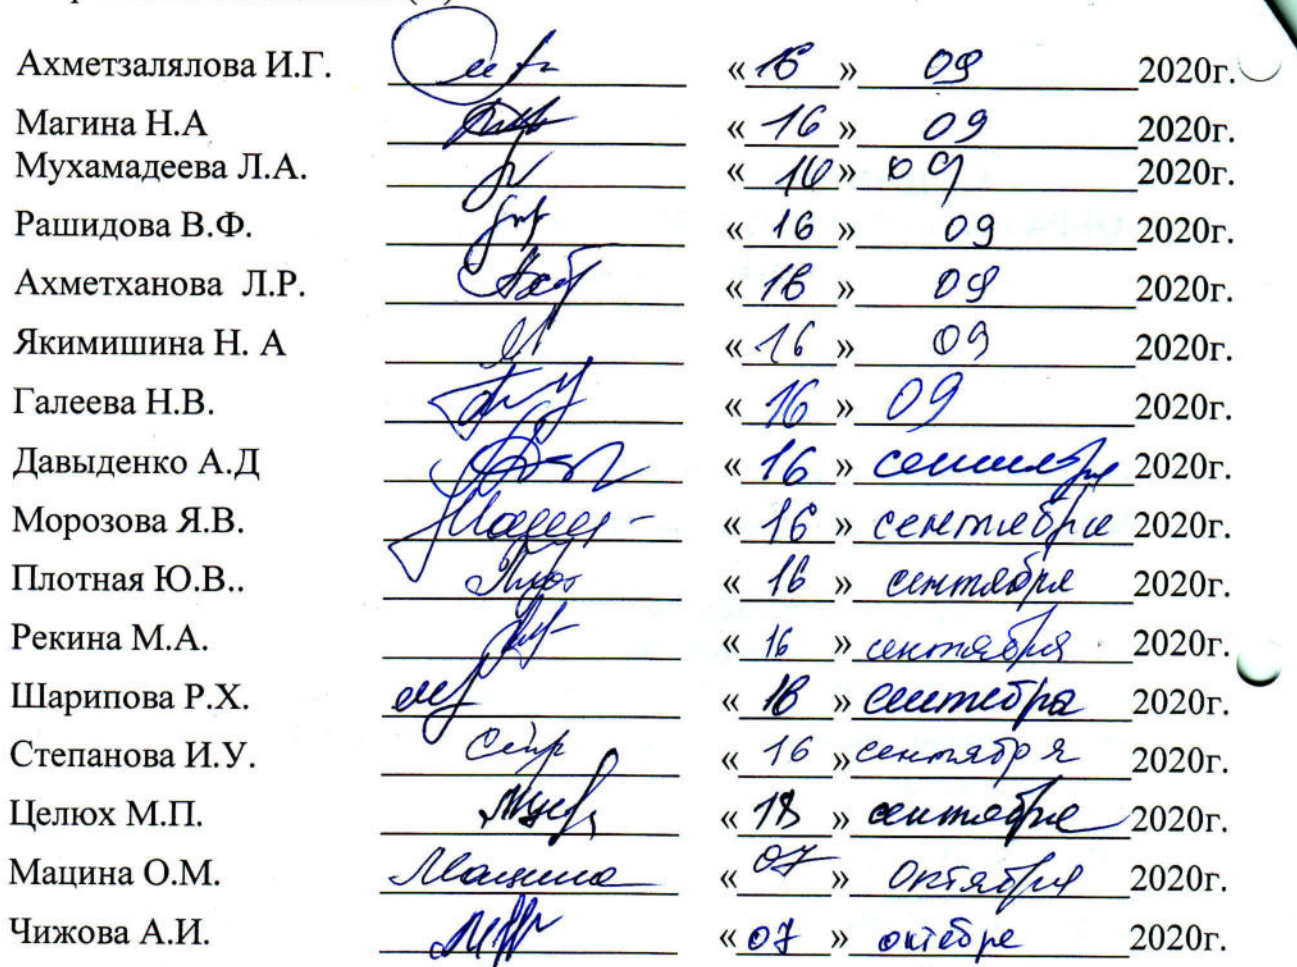 Ахметзалялова И.Г. «16» 09 2020г.
Магина Н.А «16» 09 2020г.
Мухамадеева Л.А. «16» 09 2020г.
Рашидова В.Ф. «16» 09 2020г.
Ахметханова Л.Р. «16» 09 2020г.
Якимишина Н. А «16» 09 2020г.
Галеева Н.В. «16» 09 2020г.
Давыденко А.Д «16» сентября 2020г.
Морозова Я.В. «16» сентября 2020г.
Плотная Ю.В.. «16» сентября 2020г.
Рекина М.А. «16» сентября 2020г.
Шарипова Р.Х. «18» сентября 2020г.
Степанова И.У. «16» сентября 2020г.
Целюх М.П. «18» сентября 2020г.
Мацина О.М. Мацина «07» октября 2020г.
Чижова А.И. «07» октября 2020г.